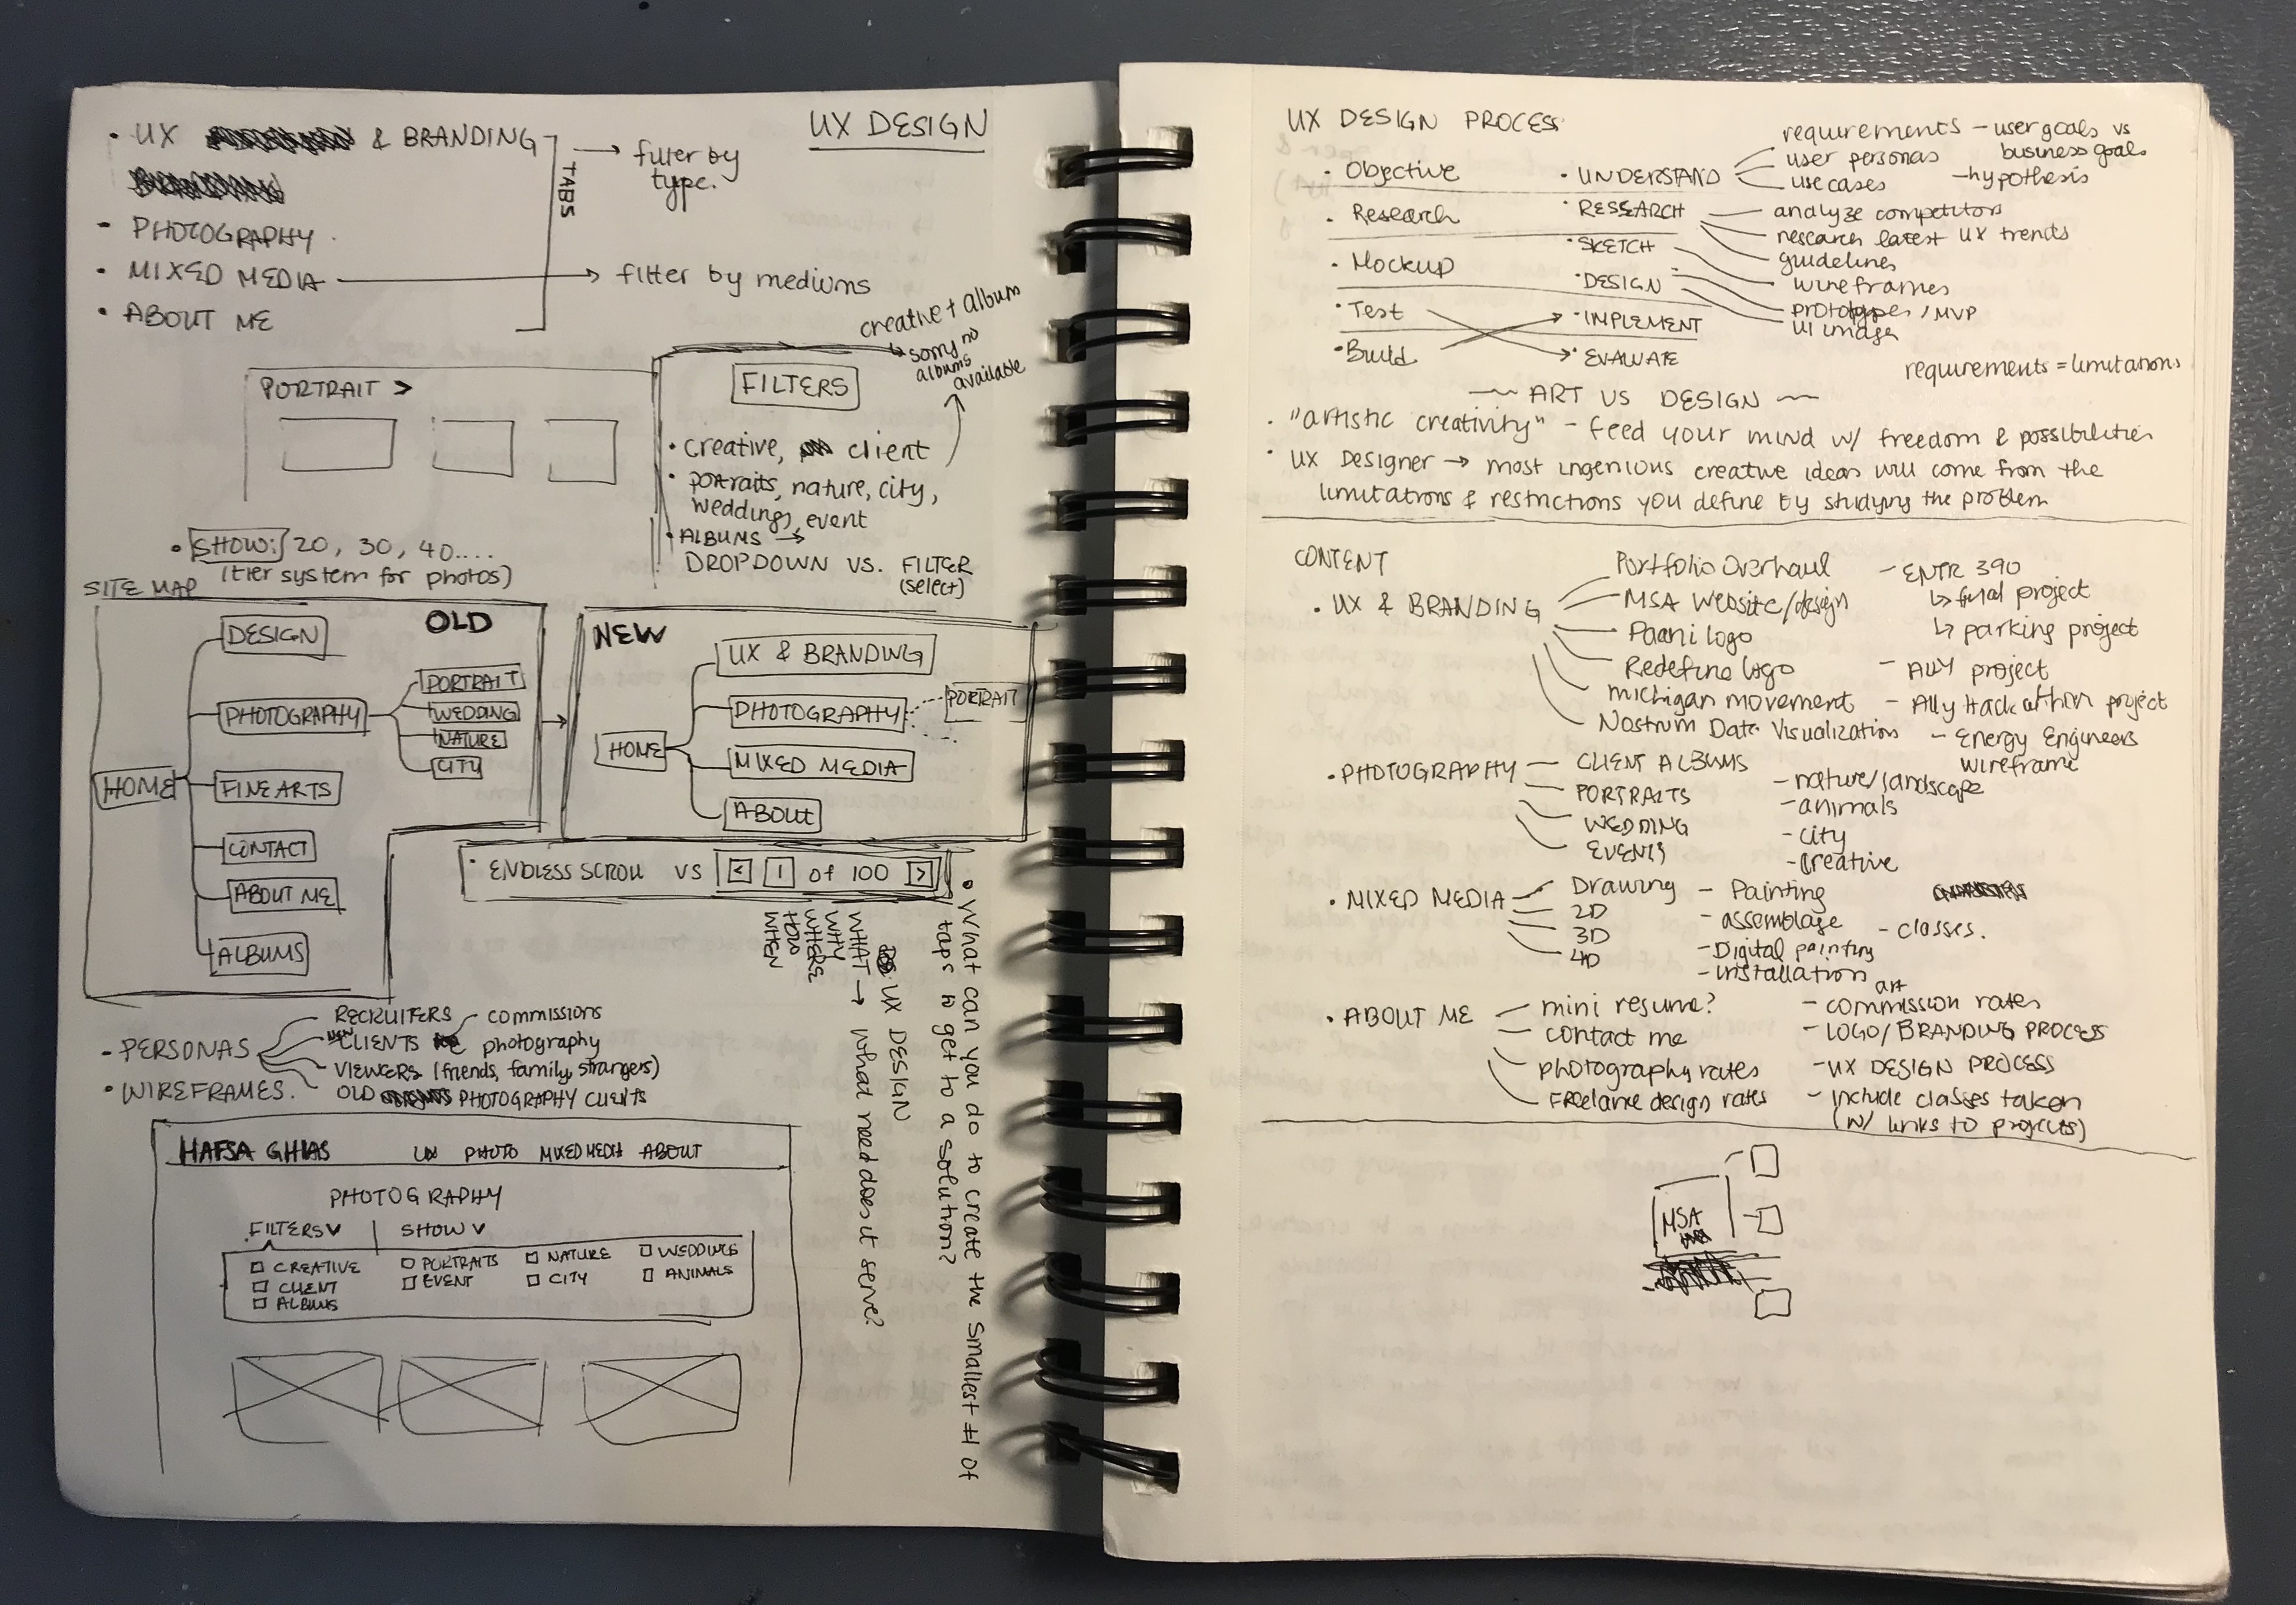 UX DESIGN
• UX & BRANDING
- PHOTOGRAPHY
• MIXED MEDIA
• ABOUT ME
TABS
→ filter by
type.
→ filter by mediums
creative + album
↳ sorry no
albums
available
PORTRAIT >
FILTERS
• creative, client
• portraits, nature, city,
weddings, event
• ALBUMS →
DROPDOWN VS. FILTER
(select)
• SHOW: 20, 30, 40....
(tier system for photos)
SITE MAP
OLD
DESIGN
PHOTOGRAPHY
PORTRAIT
WEDDING
NATURE
CITY
HOME
FINE ARTS
CONTACT
ABOUT ME
ALBUMS
NEW
UX & BRANDING
PHOTOGRAPHY
PORTRAIT
HOME
MIXED MEDIA
ABOUT
• ENDLESS SCROLL VS < 1 of 100 >
• What can you do to create the smallest # of
taps to get to a solution?
UX DESIGN
WHAT → what need does it serve?
WHY
WHERE
HOW
WHEN
- PERSONAS
RECRUITERS
NEW CLIENTS
commissions
photography
VIEWERS (friends, family, strangers)
OLD PHOTOGRAPHY CLIENTS
• WIREFRAMES.
HAFSA GHIAS UX PHOTO MIXED MEDIA ABOUT
PHOTOGRAPHY
FILTERS ∨ | SHOW ∨
□ CREATIVE □ PORTRAITS □ NATURE □ WEDDINGS
□ CLIENT □ EVENT □ CITY □ ANIMALS
□ ALBUMS
UX DESIGN PROCESS
• Objective
• Research
• Mockup
• Test
• Build
• UNDERSTAND
• RESEARCH
• SKETCH
• DESIGN
• IMPLEMENT
• EVALUATE
requirements - user goals vs
business goals
user personas
use cases - hypothesis
analyze competitors
research latest UX trends
guidelines
wireframes
prototypes / MVP
UI image
requirements = limitations
~ ART VS DESIGN ~
• "artistic creativity" - feed your mind w/ freedom & possibilities
• UX Designer → most ingenious creative ideas will come from the
limitations & restrictions you define by studying the problem
CONTENT
• UX & BRANDING
Portfolio Overhaul
MSA Website/design
Paani logo
Redefine logo
michigan movement
Nostrum Data Visualization
- ENTR 390
↳ final project
↳ parking project
- Ally project
- Ally Hackathon project
- Energy Engineers
wireframe
• PHOTOGRAPHY
CLIENT ALBUMS
PORTRAITS
WEDDING
EVENTS
- nature/landscape
- animals
- city
- creative
• MIXED MEDIA
Drawing
2D
3D
4D
- Painting
- assemblage
- Digital painting
- installation
- classes.
• ABOUT ME
mini resume?
contact me
photography rates
Freelance design rates
- art commission rates
- LOGO/BRANDING PROCESS
- UX DESIGN PROCESS
- include classes taken
(w/ links to projects)
MSA